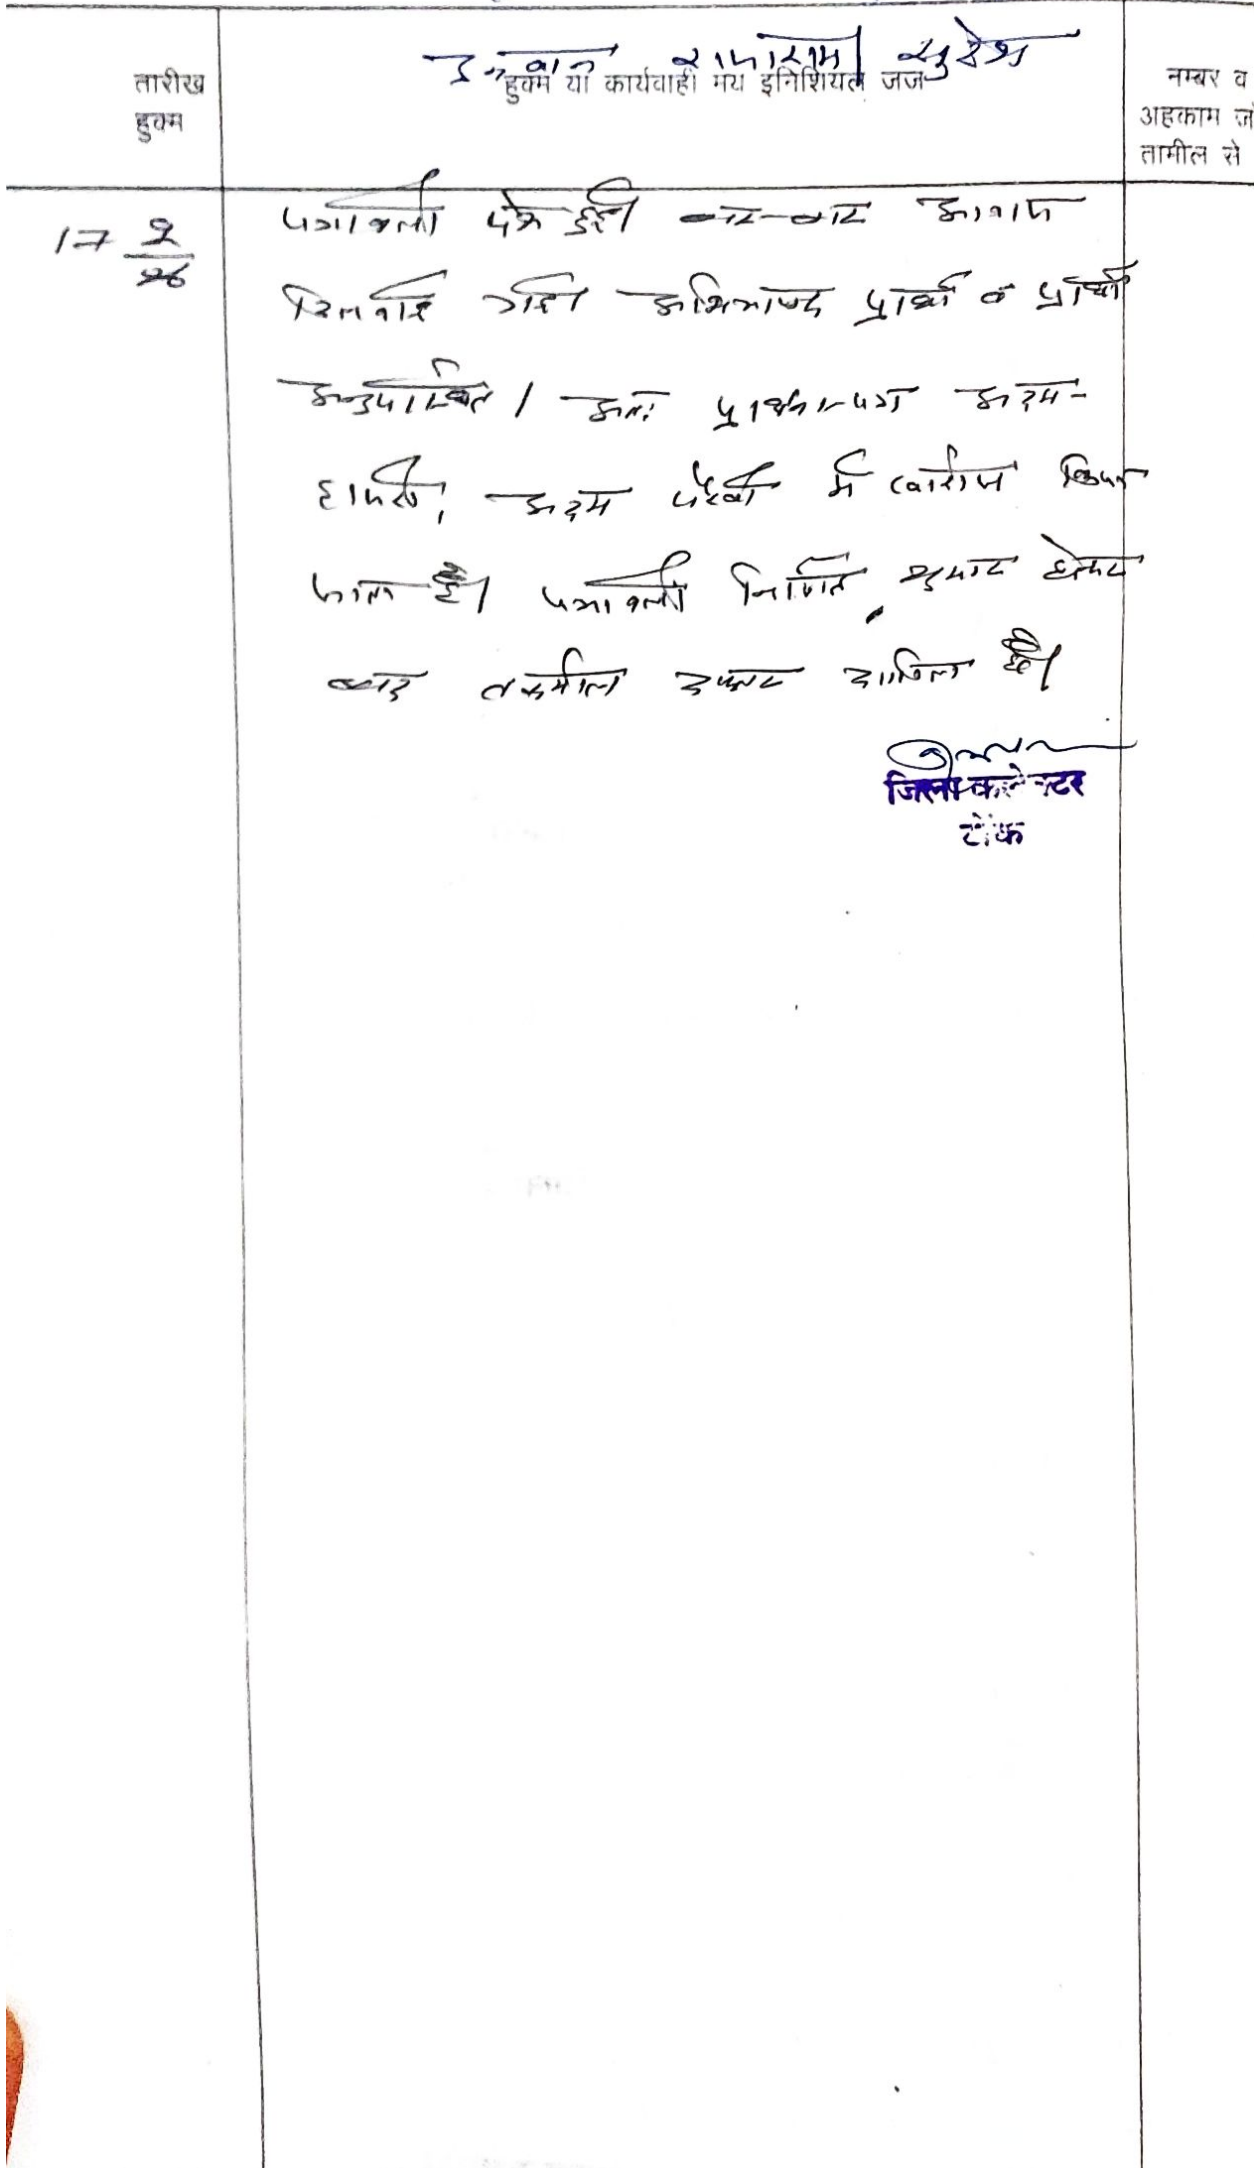 उनवान राजाराम / सुरेश
तारीख
हुक्म
हुक्म या कार्यवाही मय इनिशियल जज
नम्बर व
अहकाम ज
तामील से
17 2/26
पत्रावली पेश हुई। बार-बार आवाज
दिलवाई गई। अभिभाषक प्रार्थी व प्रार्थी
अनुपस्थित। अतः प्रार्थना-पत्र अदम-
हाजरी, अदम पैरवी में खारिज किया
जाता है। पत्रावली निर्णित शुमार होकर
बाद तकमील दफ्तर दाखिल हो।
जिला कलेक्टर
टोंक